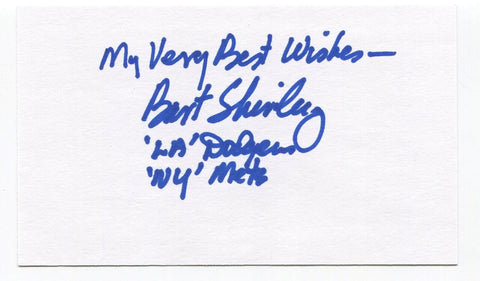 My Very Best Wishes—
Bart Shirley
'LA' Dodgers
'NY' Mets